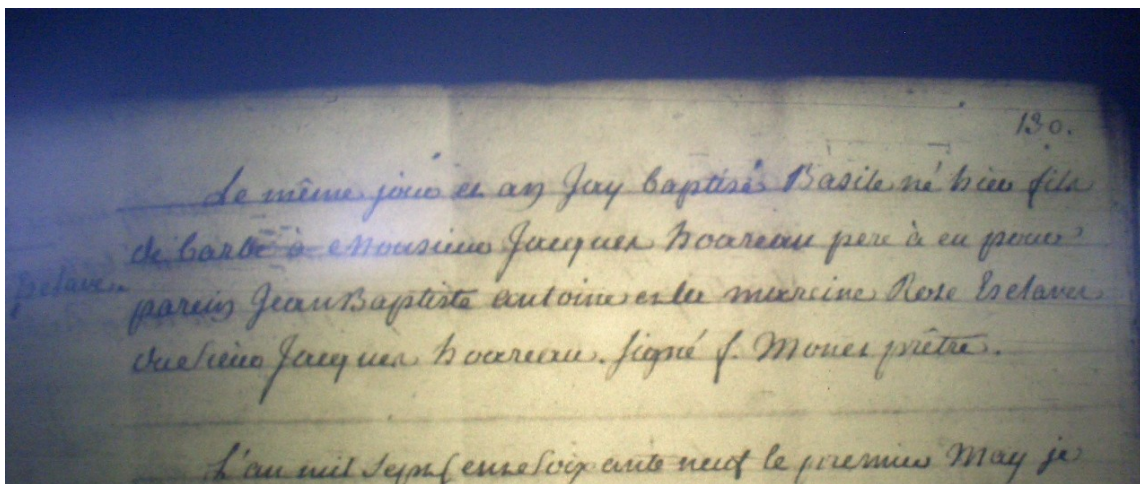 130.
Le même jour et an J'ay baptisé Basile né hier fils
de barbe à Monsieur Jacques hoareau pere à eu pour
Esclave
parein Jean Baptiste antoine et la mareine Rose Esclaves
du Sieur Jacques hoareau. signé f. Mones prêtre.
L'an mil Sept Cent Soixante neuf le premier May je